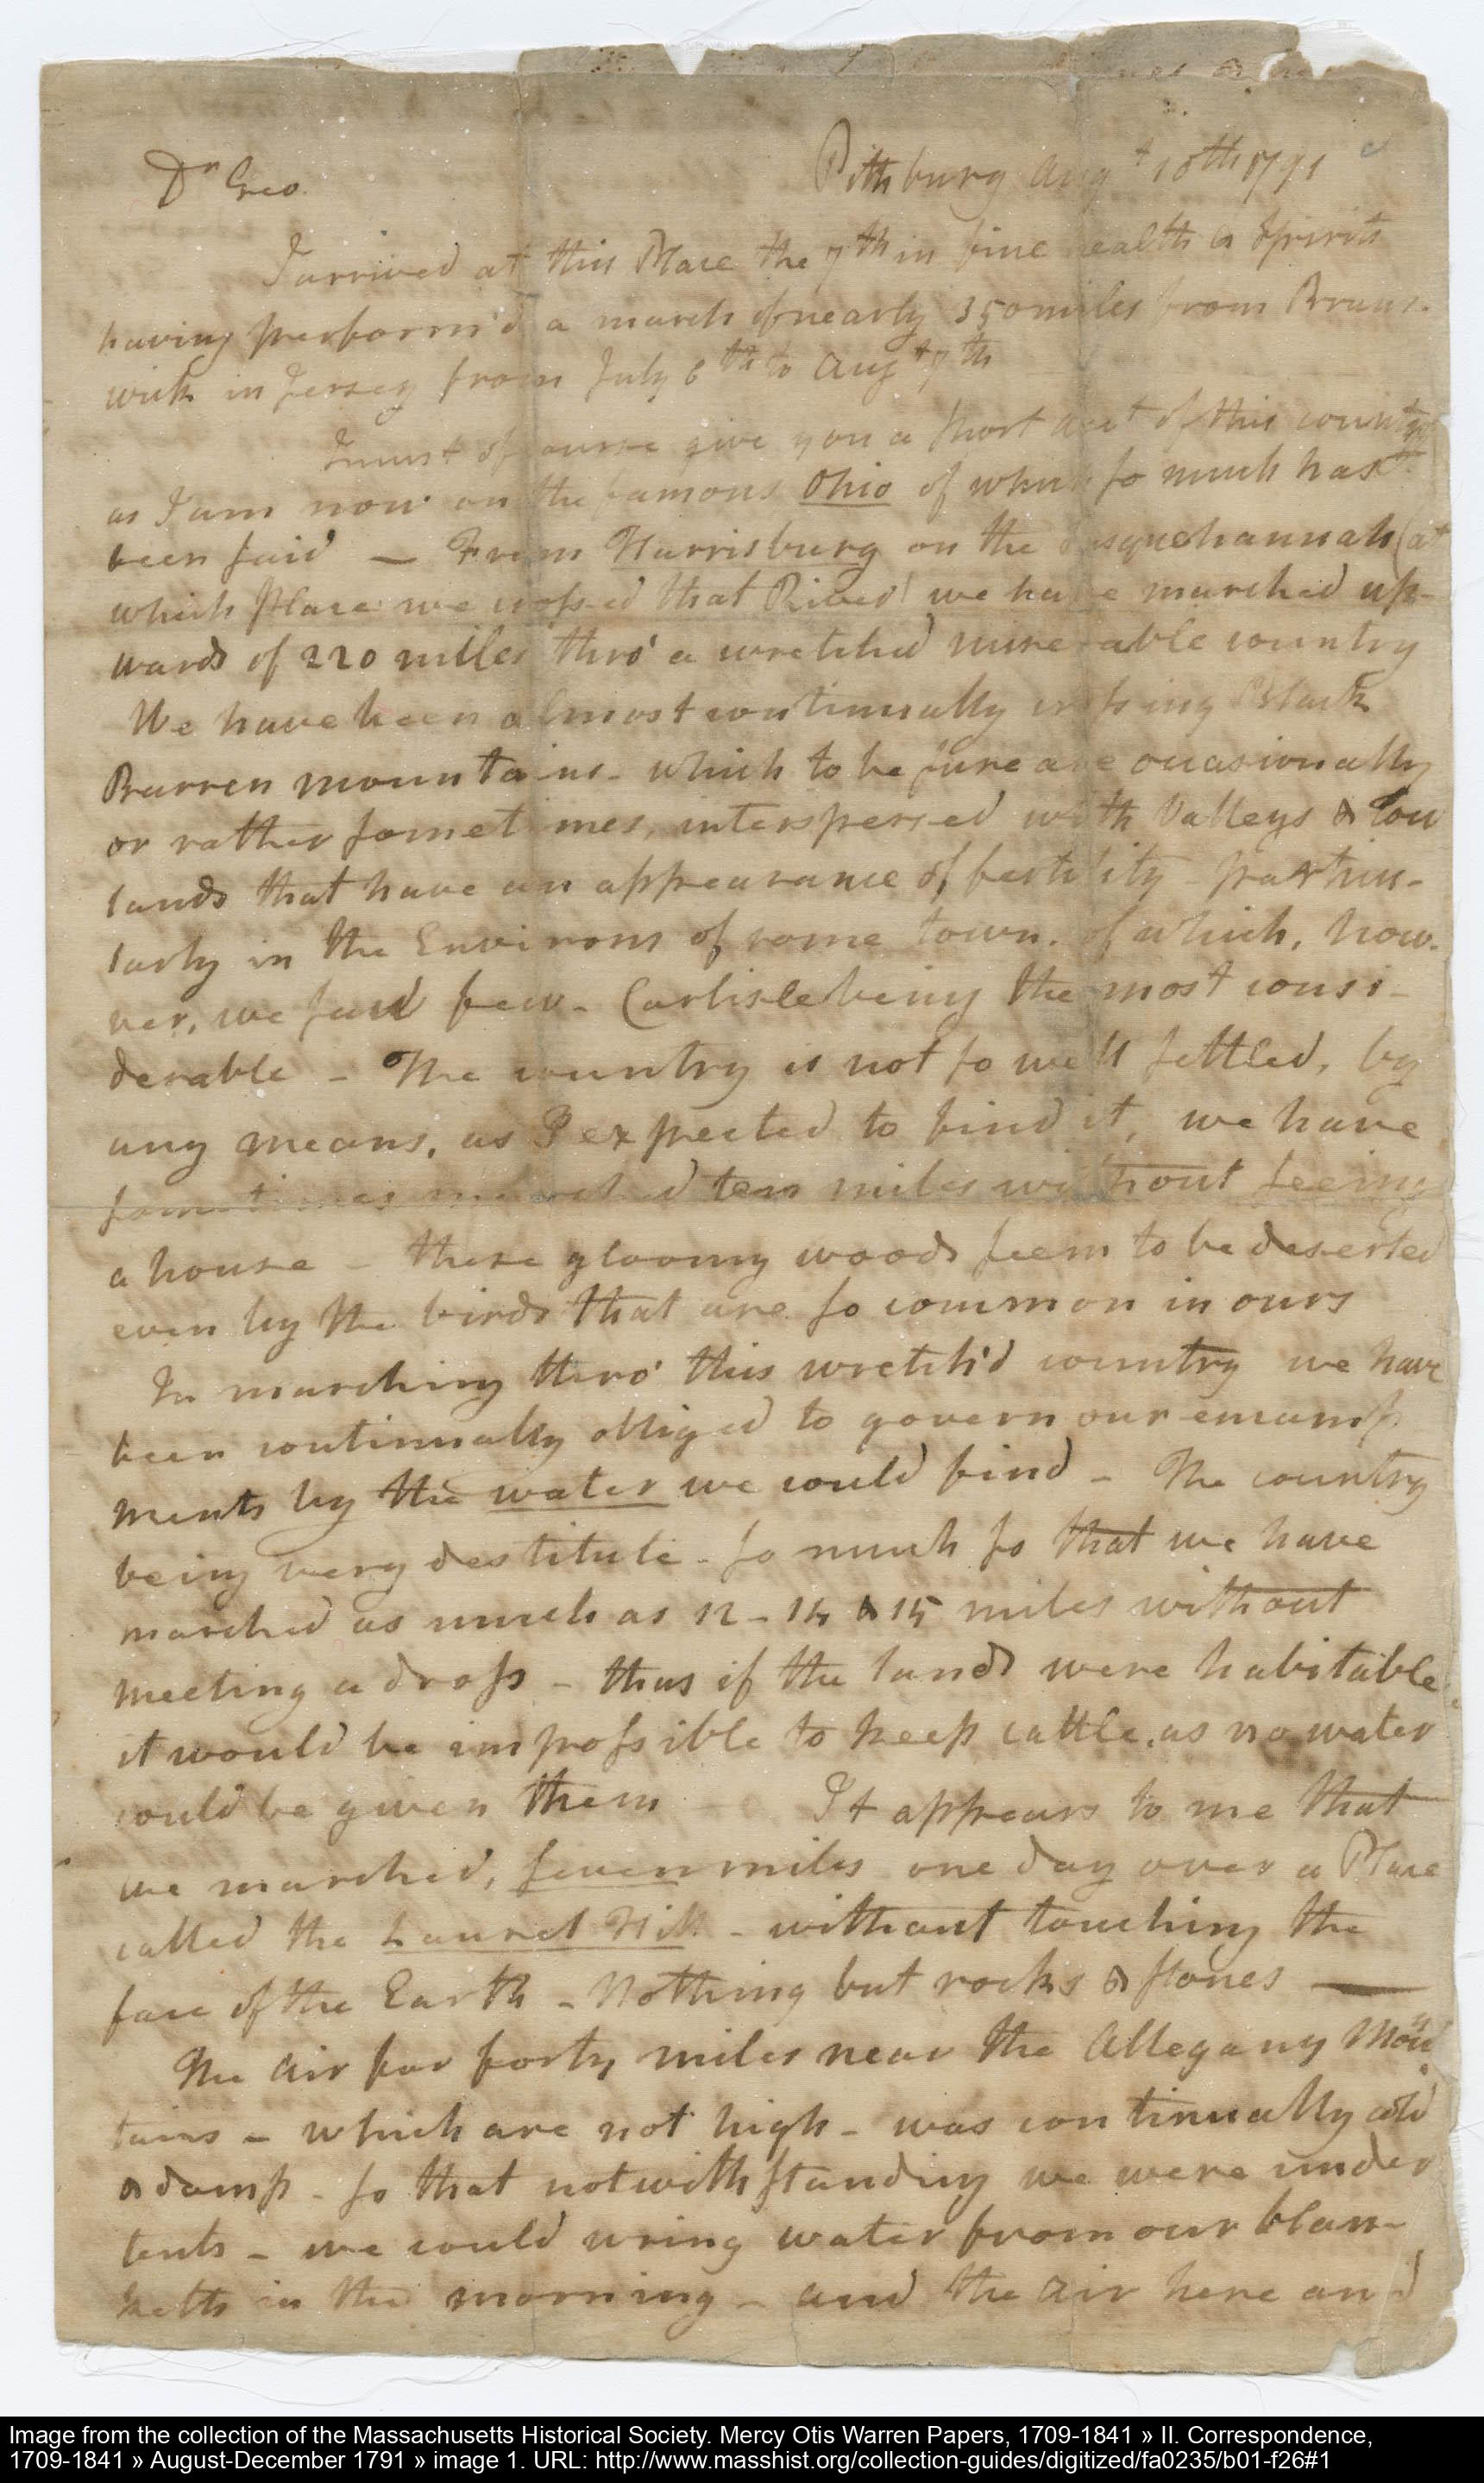 Dr Geo.
Pittsburg Augt 10th 1791
I arrived at this Place the 7th in fine health & Spirits
having perform'd a march of nearly 350 miles from Bruns-
wick in Jersey from July 6th to Augt 7th
I must of course give you a short acct of this country
as I am now on the famous Ohio of which so much has
been said — From Harrisburg on the Susquehannah (at
which Place we crossed that River) we have marched up-
wards of 220 miles thro' a wretched miserable country
We have been almost continually crossing Black
Barren mountains - which to be sure are occasionally
or rather sometimes, interspersed with Valleys & low
lands that have an appearance of fertility - particu-
larly in the Environs of some town. of which, how-
ver, we find few - Carlisle being the most consi-
derable - The country is not so well settled, by
any means, as I expected to find it, we have
sometimes marched ten miles without seeing
a house - these gloomy woods seem to be deserted
even by the birds that are so common in ours
In marching thro' this wretch'd country we have
been continually obliged to govern our encamp
ments by the water we could find - The country
being very destitute - so much so that we have
marched as much as 12 - 14 & 15 miles without
meeting a drop - thus if the lands were habitable
it would be impossible to keep cattle, as no water
could be given them - It appears to me that
we marched, seven miles one day over a Place
called the Laurel Hill - without touching the
face of the Earth - Nothing but rocks & stones —
The air for forty miles near the Allegany Moun
tains - which are not high - was continually cold
& damp - so that notwithstanding we were under
tents - we could wring water from our blan-
ketts in the morning - and the air here and
Image from the collection of the Massachusetts Historical Society. Mercy Otis Warren Papers, 1709-1841 » II. Correspondence,
1709-1841 » August-December 1791 » image 1. URL: http://www.masshist.org/collection-guides/digitized/fa0235/b01-f26#1